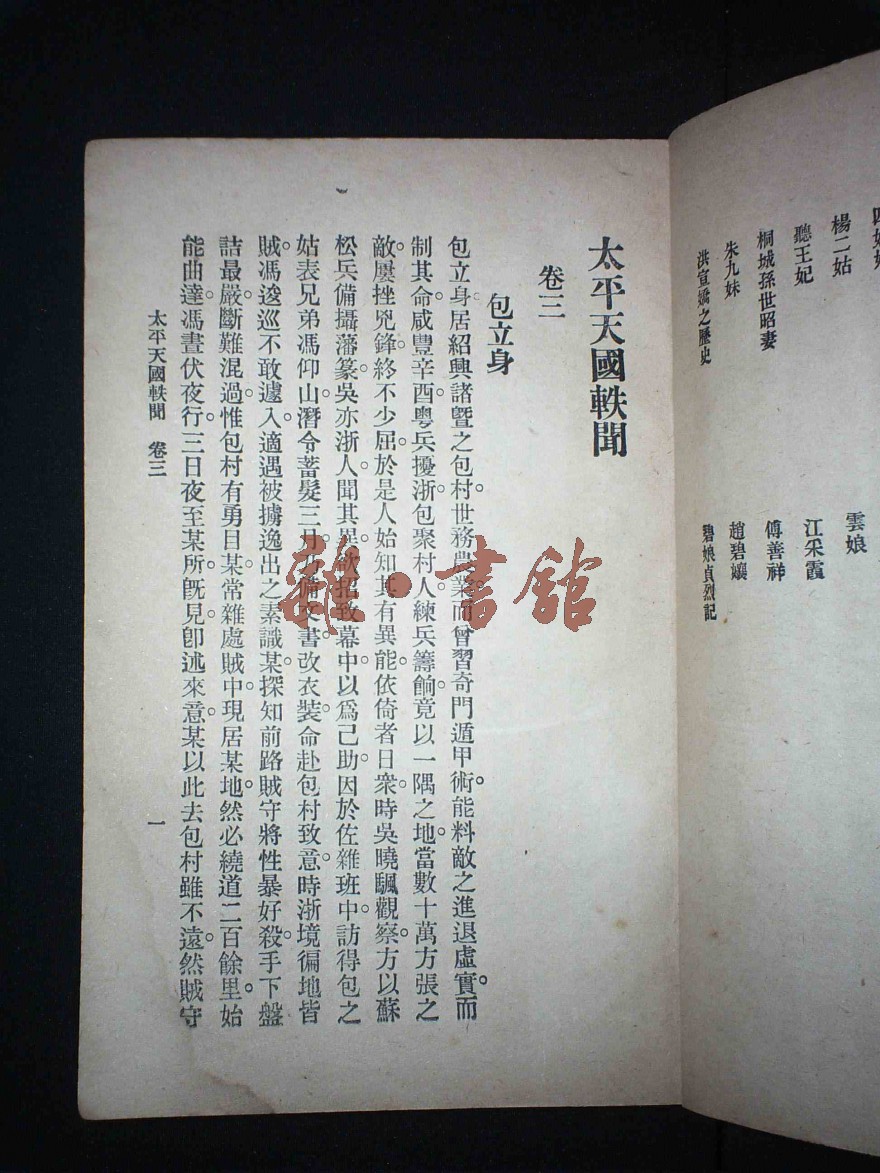 楊二姑　雲娘
聽王妃　江采霞
桐城孫世昭妻　傅善祥
朱九妹　趙碧孃
洪宣嬌之歷史　碧娘貞烈記
太平天國軼聞
卷三
包立身
包立身居紹興諸暨之包村。世務農業。而曾習奇門遁甲術。能料敵之進退虛實。而
制其命。咸豐辛酉。粵兵擾浙。包聚村人。練兵籌餉。竟以一隅之地。當數十萬方張之
敵。屢挫兇鋒。終不少屈。於是人始知其有異能。依倚者日衆。時吳曉颿觀察。方以蘇
松兵備攝藩篆。吳亦浙人。聞其異。欲招致幕中。以爲己助。因於佐雜班中。訪得包之
姑表兄弟馮仰山。潛令蓄髮三月。乃備文書。改衣裝。命赴包村致意。時浙境徧地皆
賊。馮逡巡不敢遽入。適遇被擄逸出之素識某。探知前路賊守將性暴好殺。手下盤
詰最嚴。斷難混過。惟包村有勇目某。常雜處賊中。現居某地。然必繞道二百餘里。始
能曲達。馮晝伏夜行。三日夜至某所。旣見。卽述來意。某以此去包村雖不遠。然賊守
太平天國軼聞　卷三
一
雜·書館